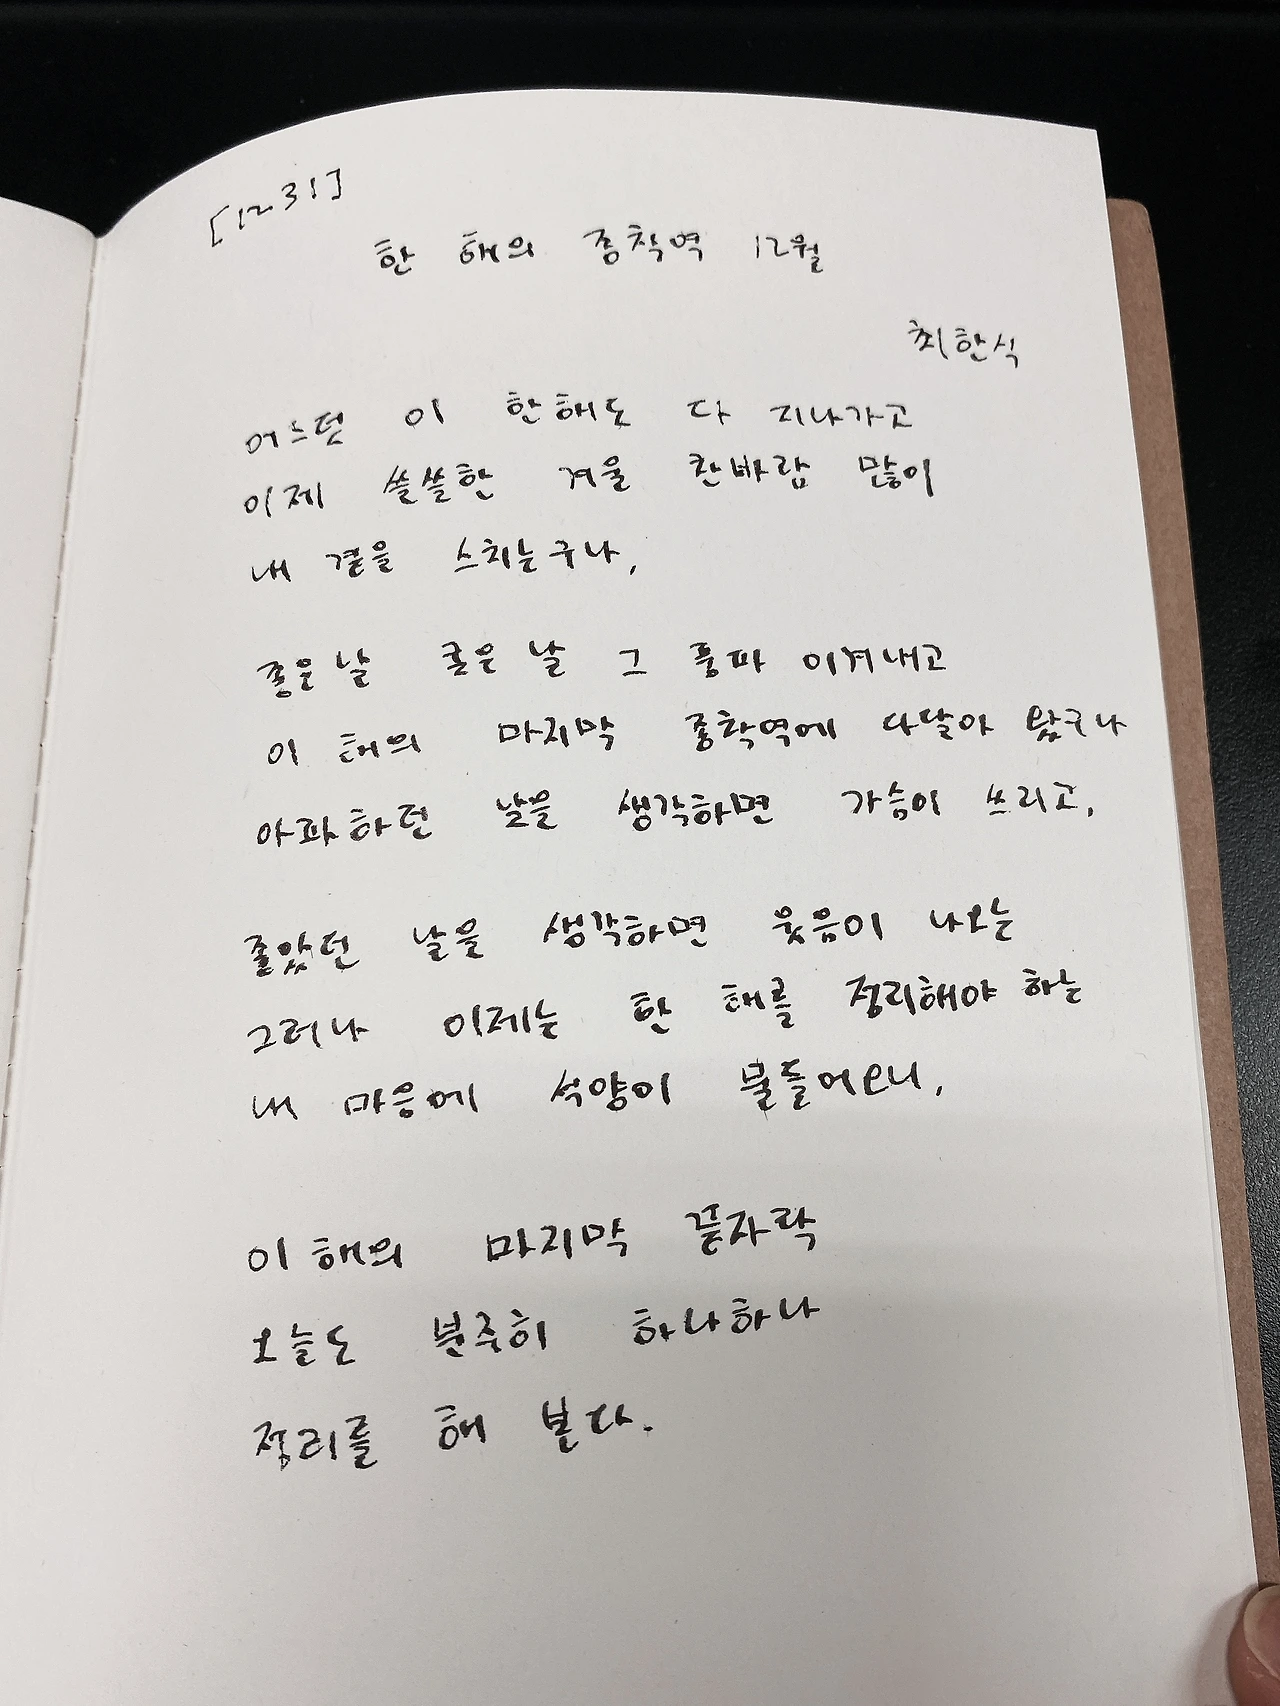 [1231]
한 해의 종착역 12월
최한식
어느덧 이 한해도 다 지나가고
이제 쓸쓸한 겨울 찬바람 많이
내 곁을 스치는구나,
좋은날 궂은날 그 풍파 이겨내고
이 해의 마지막 종착역에 다달아 왔구나
아파하던 날을 생각하면 가슴이 쓰리고,
좋았던 날을 생각하면 웃음이 나오는
그러나 이제는 한 해를 정리해야 하는
내 마음에 석양이 물들어오니,
이 해의 마지막 끝자락
오늘도 분주히 하나하나
정리를 해 본다.